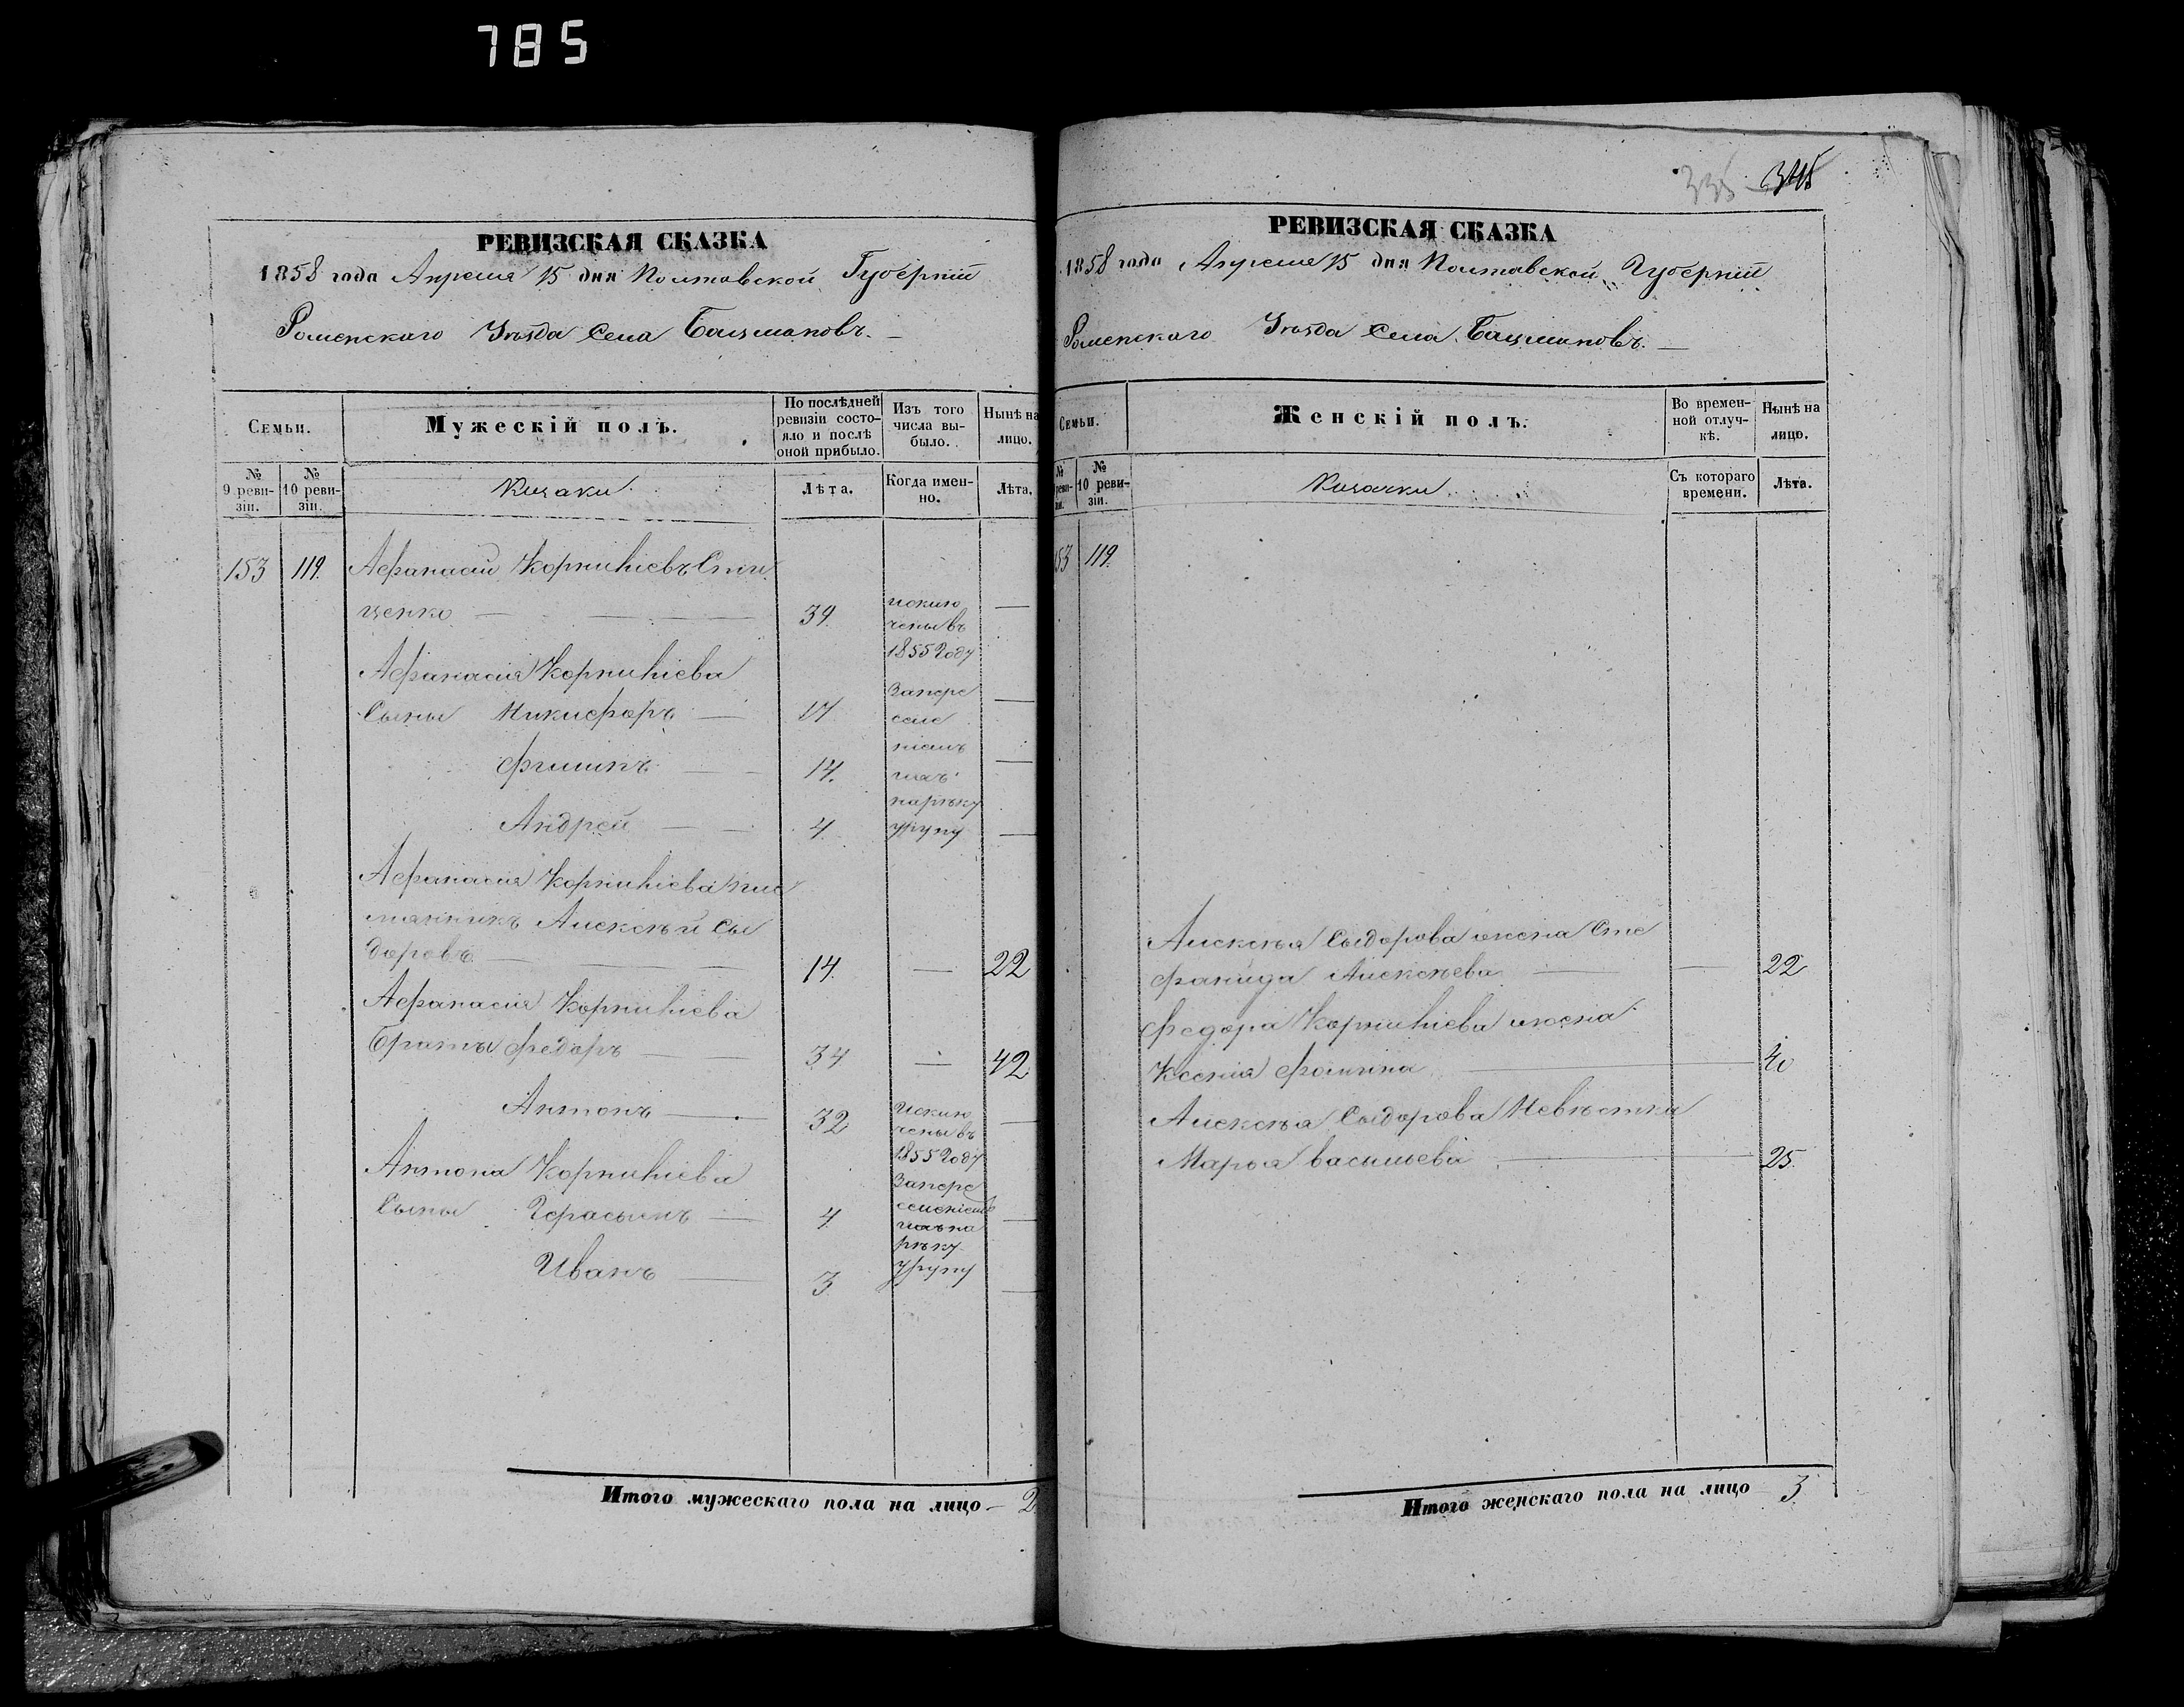 785
РЕВИЗСКАЯ СКАЗКА
1858 года Апреля 15 дня Полтавской Губерніи
Роменскаго Уѣзда Села Бацмановъ.
Семьи.
Мужескій полъ.
По послѣдней ревизіи состо-яло и послѣ оной прибыло.
Изъ того числа вы-было.
Нынѣ на лицо.
№ 9 реви-зіи.
№ 10 реви-зіи.
Козаки
Лѣта.
Когда имен-но.
Лѣта.
153 119. Афанасій Корнилiевъ Сти
ценко — 39. исклю —
чены въ
1855 Году
Афанасія Корнилiева
Сыны Никифоръ — 17 Запере —
селе
Филипъ — 14. ніемъ —
ихъ
Андрей — 4. нарѣку
Урупу —
Афанасія Корнилiева пле
мянникъ Алексѣй Сы
доровъ — 14. — 22
Афанасія Корнилiева
Братья Федоръ — 34 — 42
Антонъ — 32 исклю —
чены въ
1855 Году
Антона Корнилiева
Запере
Сыны Герасымъ — 4. селеніемъ —
ихъ на
рѣку
Иванъ — 3. Урупу —
Итого мужескаго пола на лицо — 2
335 345
РЕВИЗСКАЯ СКАЗКА
1858 года Апреля 15 дня Полтавской Губерніи
Роменскаго Уѣзда Села Бацмановъ. —
Семьи.
Женскій полъ.
Во времен-ной отлуч-кѣ.
Нынѣ на лицо.
№ реви-зіи.
№ 10 реви-зіи.
Козачки
Съ котораго времени.
Лѣта.
53 119.
Алексѣя Сыдорова жена Сте
фанида Алексѣева — 22
Федора Корнилiева жена
Ксенія Фомина — 40
Алексѣя Сыдорова Невѣстка
Марья Васильева — 25.
Итого женскаго пола на лицо 3